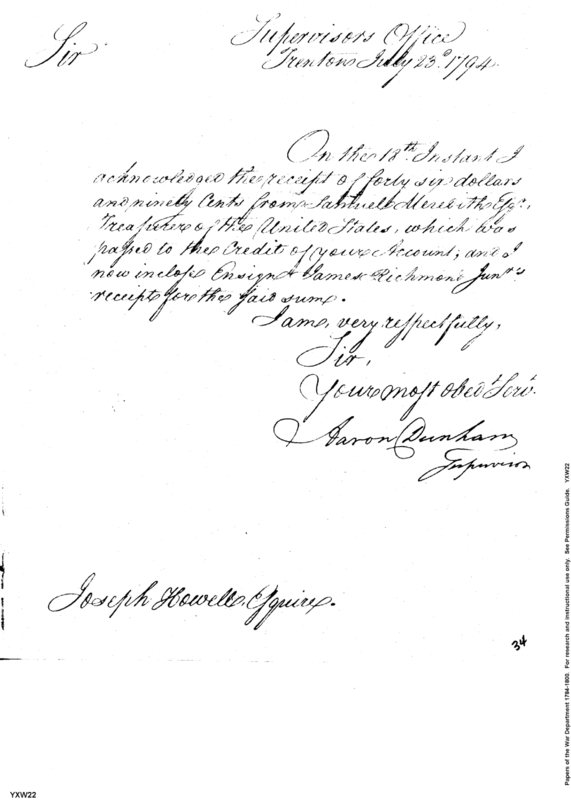 Supervisors Office
Sir
Trenton July 23d. 1794.
On the 18th. Instant I
acknowledged the receipt of forty six dollars
and ninety Cents from Samuel Meredith Esqr.,
Treasurer of the United States, which was
passed to the Credit of your Account; and I
now inclose Ensign James Richmond Junr's
receipt for the said sum.
I am, very respectfully,
Sir,
Your most obedt. Servt.
Aaron Dunham
Supervisor
Joseph Howell, Esquire.
34
Papers of the War Department 1784-1800. For research and instructional use only. See Permissions Guide. YXW22
YXW22